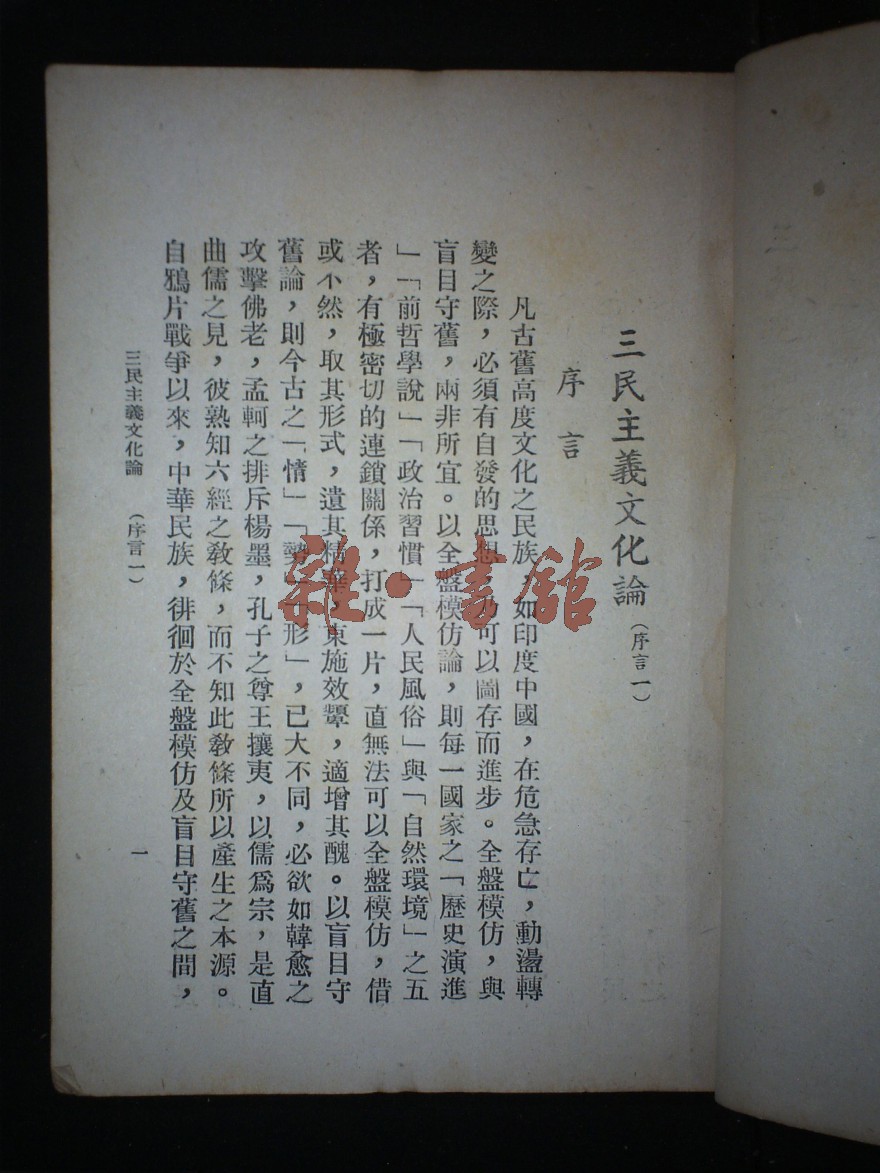 三民主義文化論(序言一)
序言
凡古舊高度文化之民族,如印度中國,在危急存亡,動盪轉
變之際,必須有自發的思想,乃可以圖存而進步。全盤模仿,與
盲目守舊,兩非所宜。以全盤模仿論,則每一國家之「歷史演進
」「前哲學說」「政治習慣」「人民風俗」與「自然環境」之五
者,有極密切的連鎖關係,打成一片,直無法可以全盤模仿,借
或不然,取其形式,遺其精華,東施效顰,適增其醜。以盲目守
舊論,則今古之「情」「勢」「形」,已大不同,必欲如韓愈之
攻擊佛老,孟軻之排斥楊墨,孔子之尊王攘夷,以儒爲宗,是直
曲儒之見,彼熟知六經之敎條,而不知此敎條所以產生之本源。
自鴉片戰爭以來,中華民族,徘徊於全盤模仿及盲目守舊之間,
三民主義文化論 (序言一)
一
雜·書館